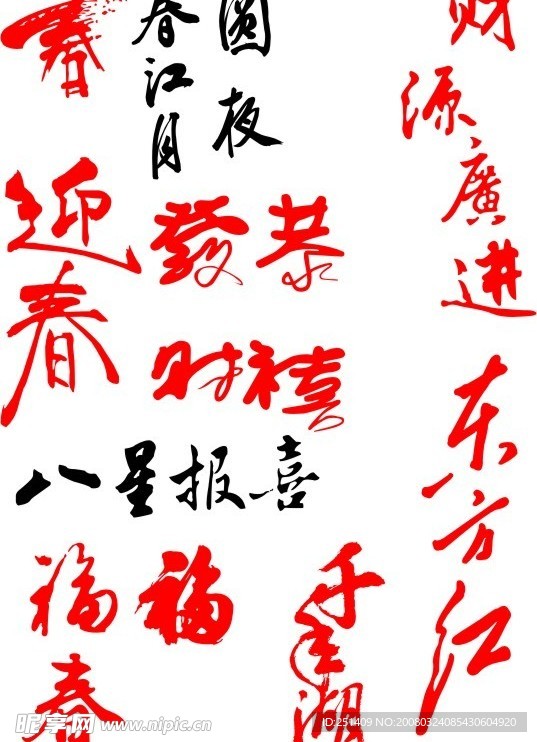 春
春江月
圆夜
财源廣进
迎春
恭禧
發财
东方红
八星报喜
福
福
春
千湖
昵享网 www.nipic.cn
ID:251409 NO:20080324085430604920